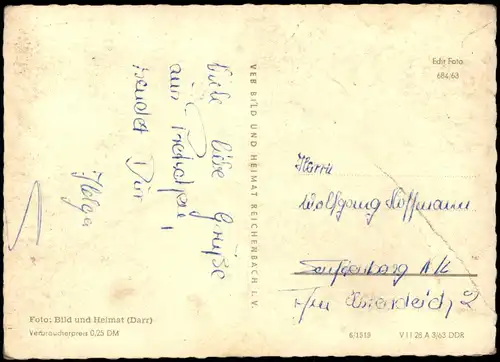 Viele liebe Grüße
aus
sendet Dir
Helga
VEB BILD UND HEIMAT REICHENBACH i. V.
Echt Foto
684/63
Herrn
Wolfgang Hoffmann
Senftenberg N/L
Foto: Bild und Heimat (Darr)
Verbraucherpreis 0,25 DM
6/1313 V 11 28 A 3/63 DDR